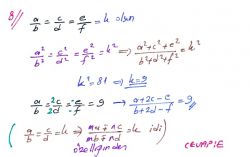 8)
a/b = c/d = e/f = k olsun
a²/b² = c²/d² = e²/f² = k² ⇒ (a²+c²+e²)/(b²+d²+f²) = k²
k² = 81 ⇒ k = 9
a/b = 2c/2d = -e/-f = 9 ⇒ (a+2c-e)/(b+2d-f) = 9
( a/b = c/d = k ⇒ = k idi )
özelliğinden